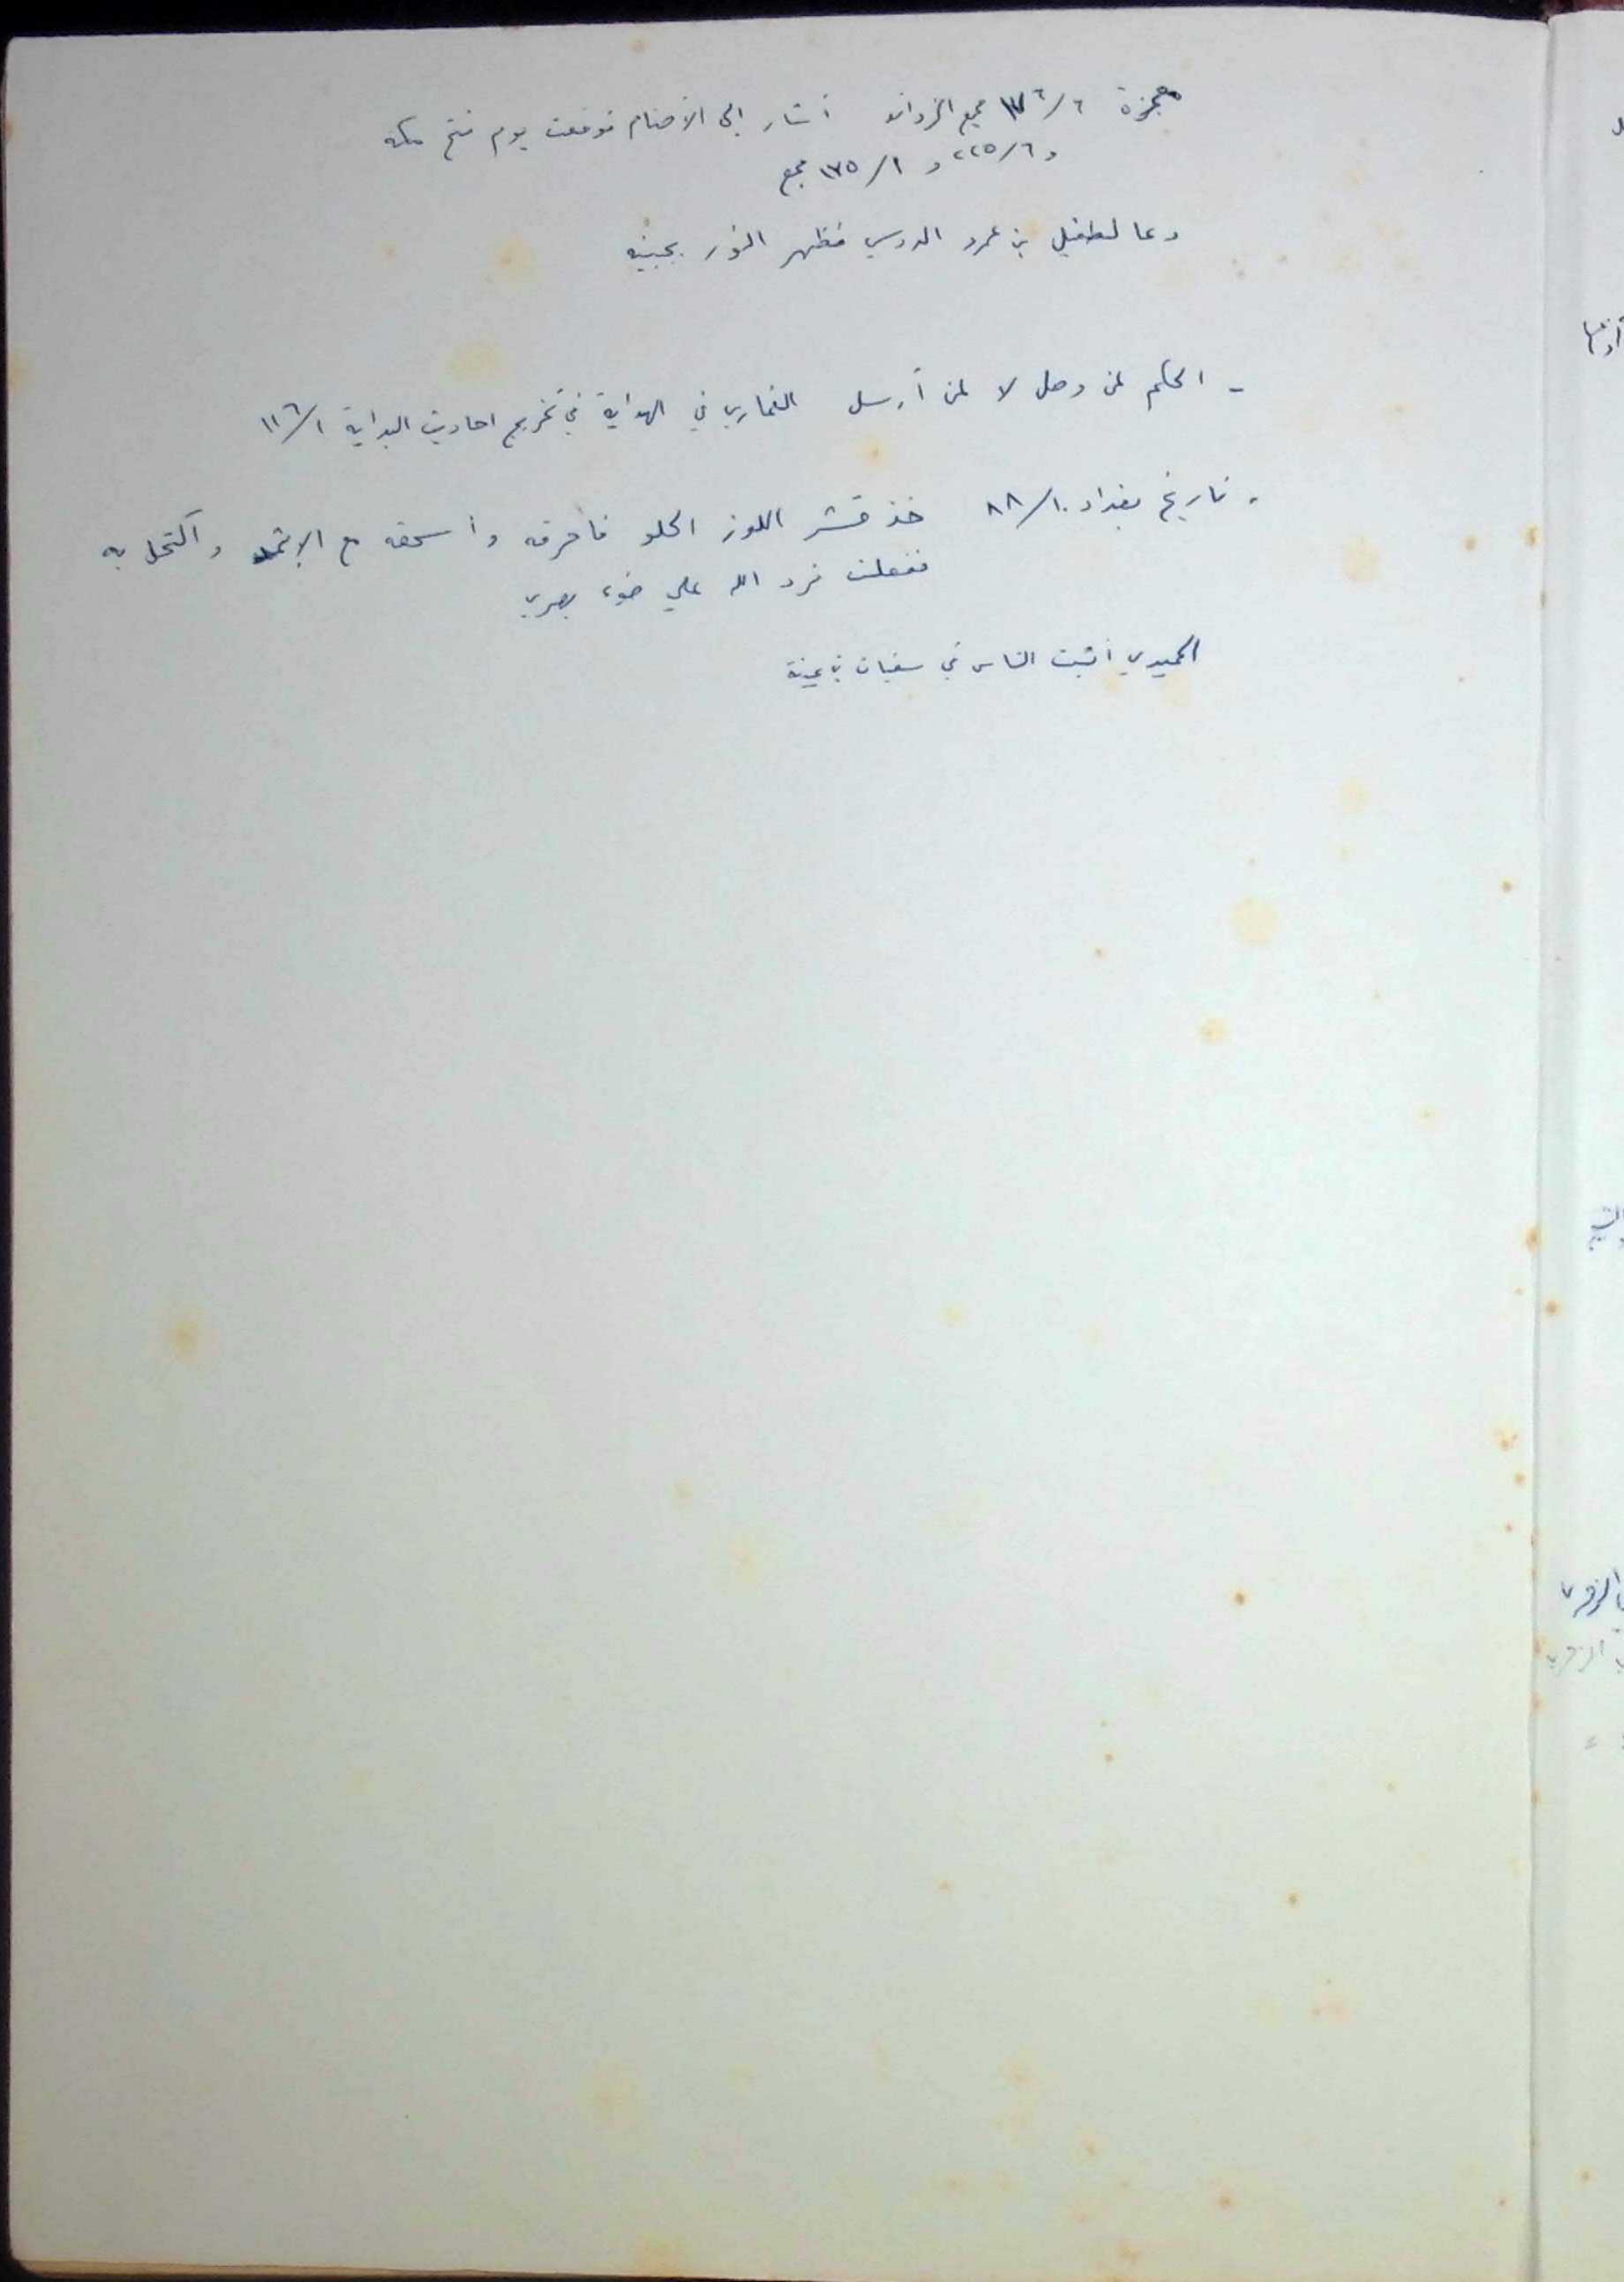 معجزة ٦/١٧٦ مجمع الزوائد أشار إلى الأصنام فوقعت يوم فتح مكة
و ٦/٢٢٥ و ١/١٧٥ مجمع
دعا لطفيل بن عمرو الدوسي فظهر النور بجبينه
- الحكم لمن وصل لا لمن أرسل الغماري في الهداية في تخريج احاديث البداية ١/١١٦
- تاريخ بغداد ١٠/٨٨ خذ قشر اللوز الحلو فأحرقه وأسحقه مع الإثمد واكتحل به
ففعلت فرد الله علي ضوء بصري
الحميدي أثبت الناس في سفيان بن عيينة